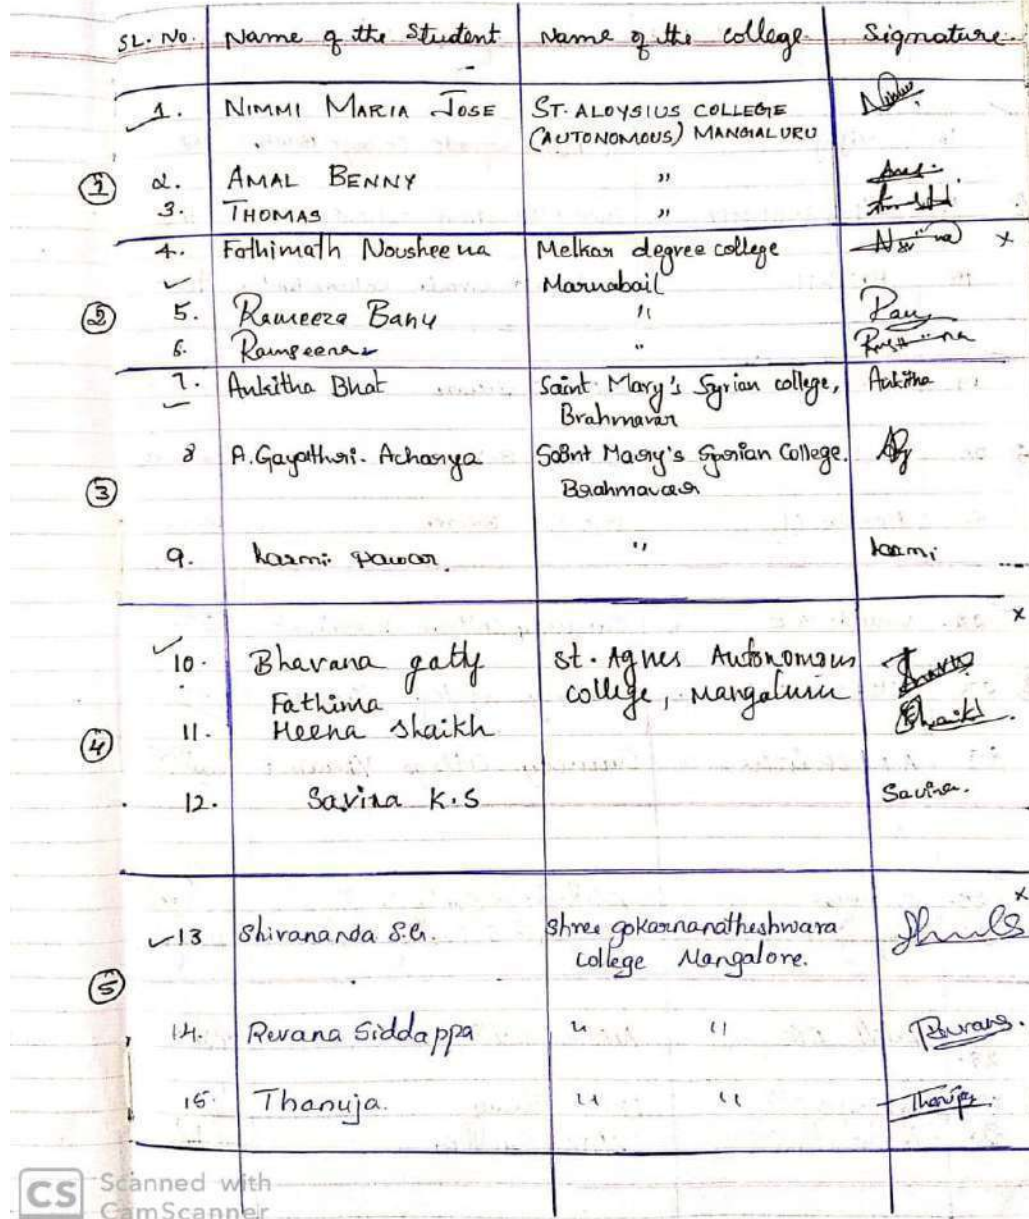 SL. No. Name of the Student Name of the college Signature
1. NIMMI MARIA JOSE ST. ALOYSIUS COLLEGE
(AUTONOMOUS) MANGALURU
1 2. AMAL BENNY "
3. THOMAS "
4. Fathimath Nousheena Melkar degree college x
Marnabail
2 5. Rameeza Banu "
6. "
7. Ankitha Bhat Saint Mary's Syrian college, Ankitha
Brahmavar
8 A. Gayathri. Acharya Saint Mary's Syrian College.
3 Brahmavar
9. Pawar. "
x
10. Bhavana gatty St. Agnes Autonomous
Fathima college, Mangaluru
11. Heena Shaikh Shaikh
4
12. Savina K.S Savina.
x
13 Shivananda S.G. Shree gokarnanatheshwara
college Mangalore.
5
14. Revana Siddappa " " Revana.
15. Thanuja. " " Thanuja.
CS Scanned with
CamScanner